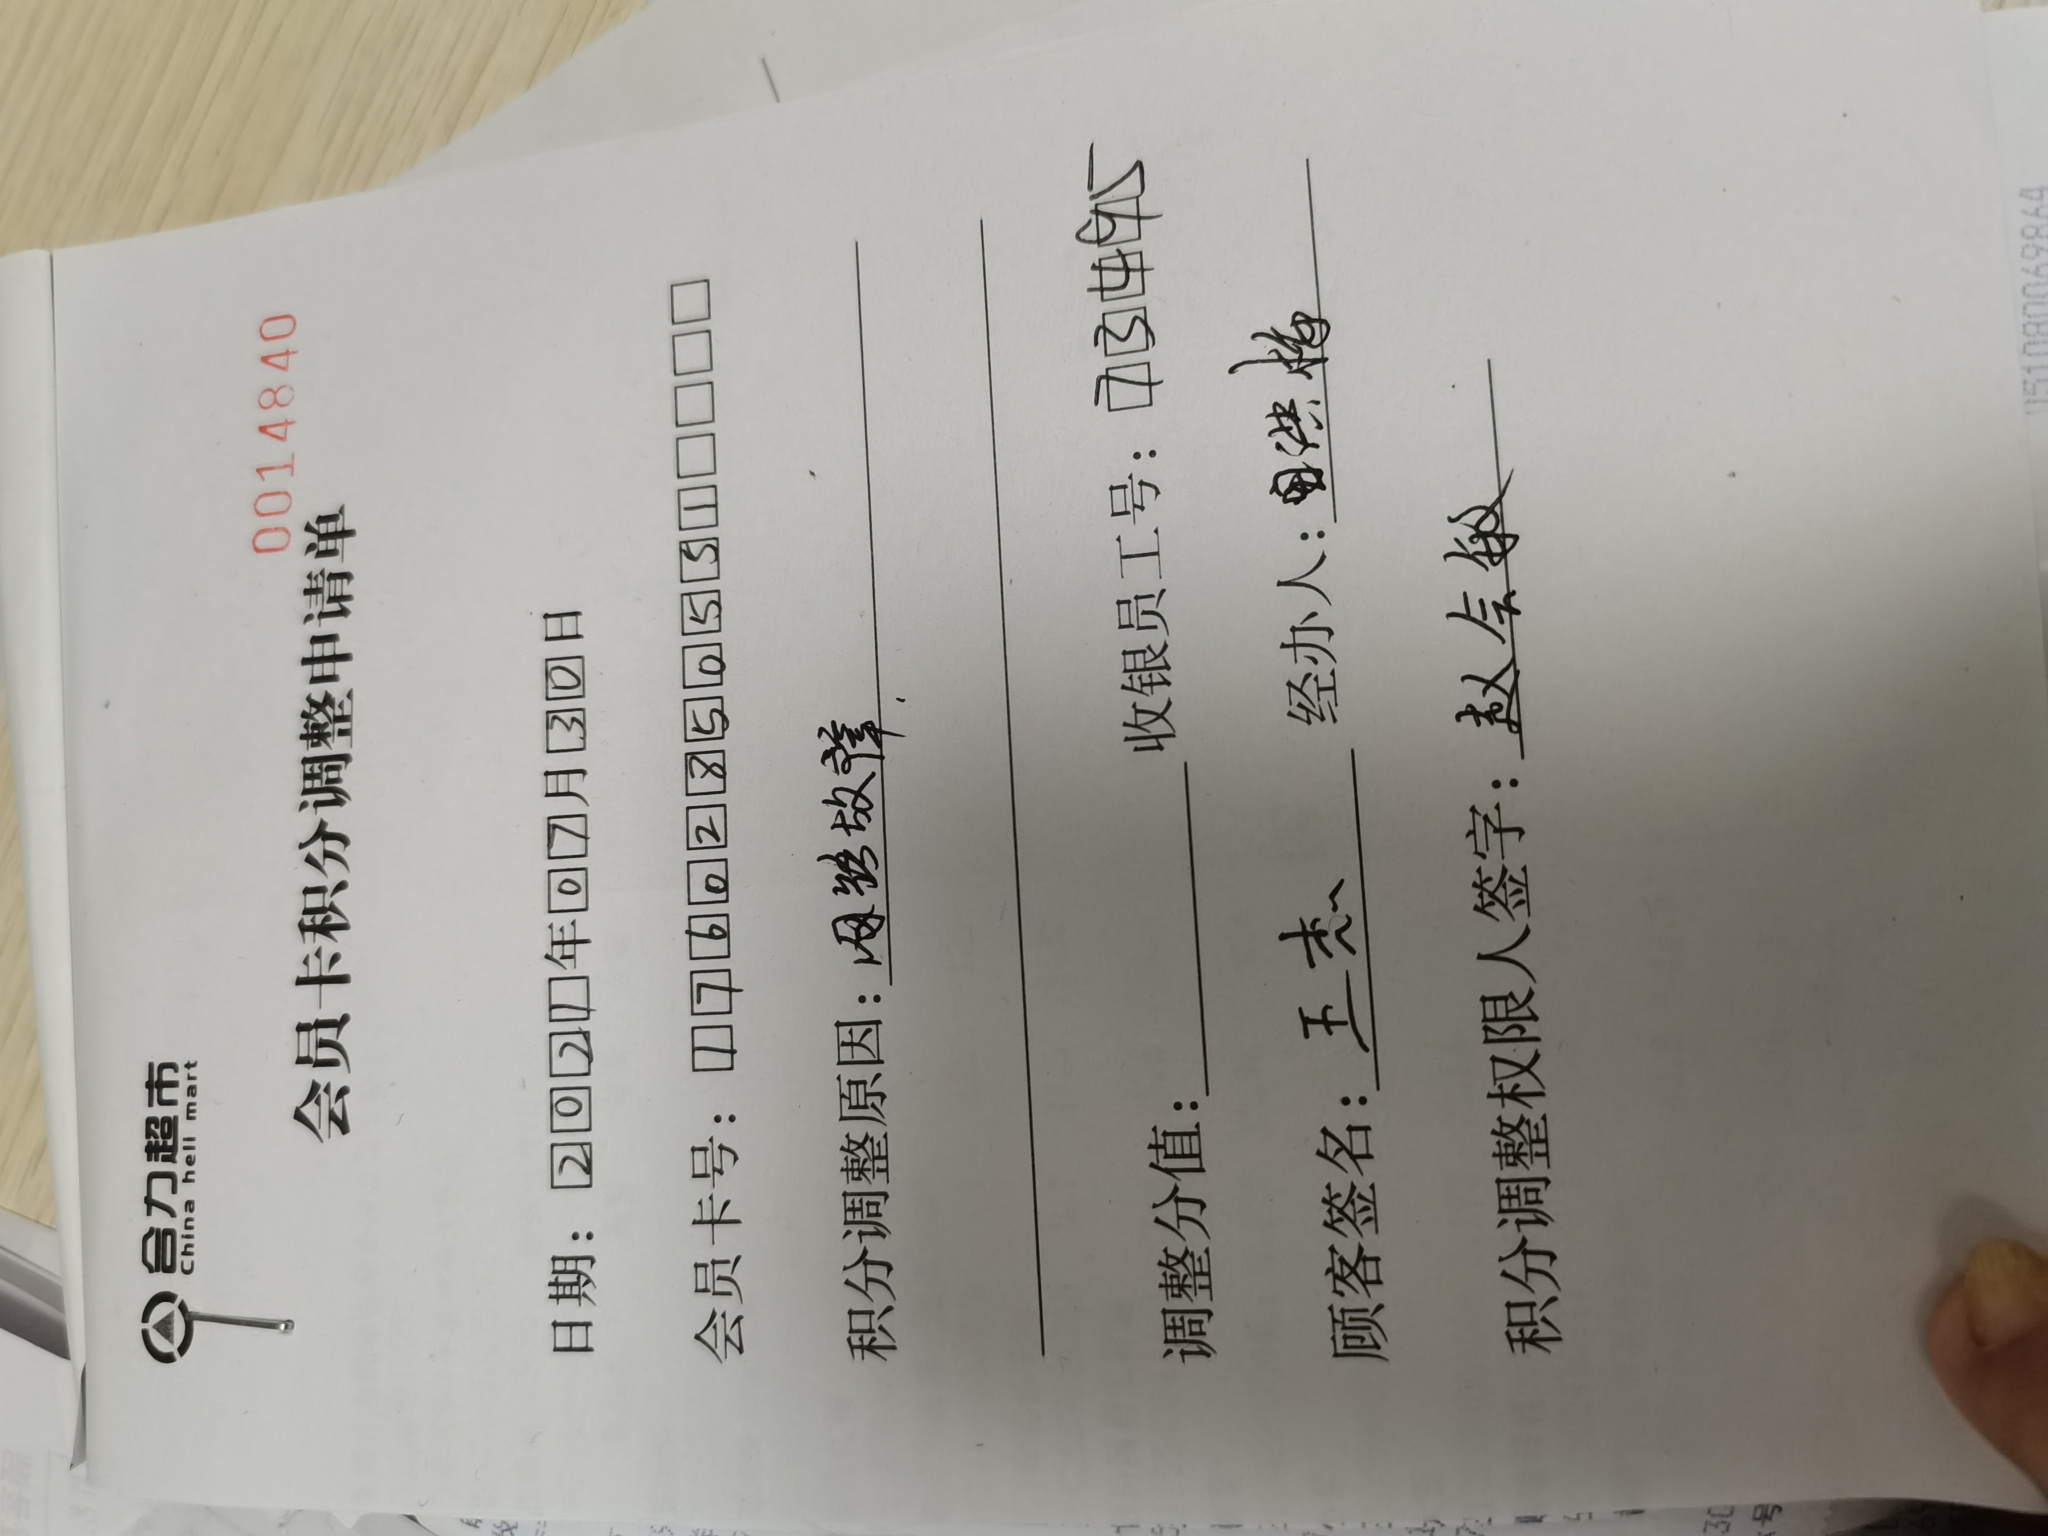 合力超市
China hell mart
0014840
会员卡积分调整申请单
日期：2021年07月30日
会员卡号：17602850551
积分调整原因：网路故障
调整分值： 收银员工号：7349
顾客签名：王杰 经办人：田洪梅
积分调整权限人签字：赵会敏
15108069864